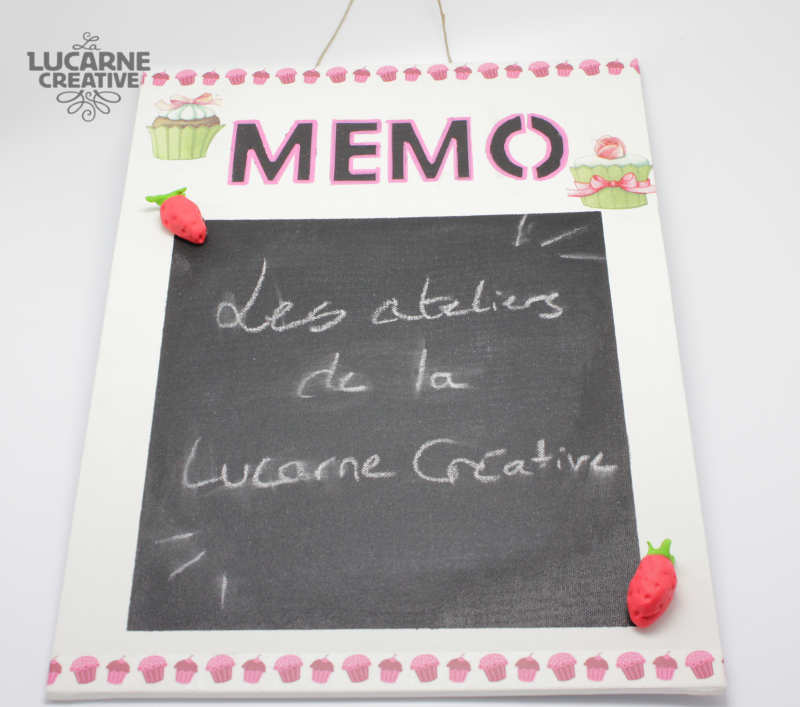 La
LUCARNE
CREATIVE
MEMO
Les ateliers
de la
Lucarne Creative